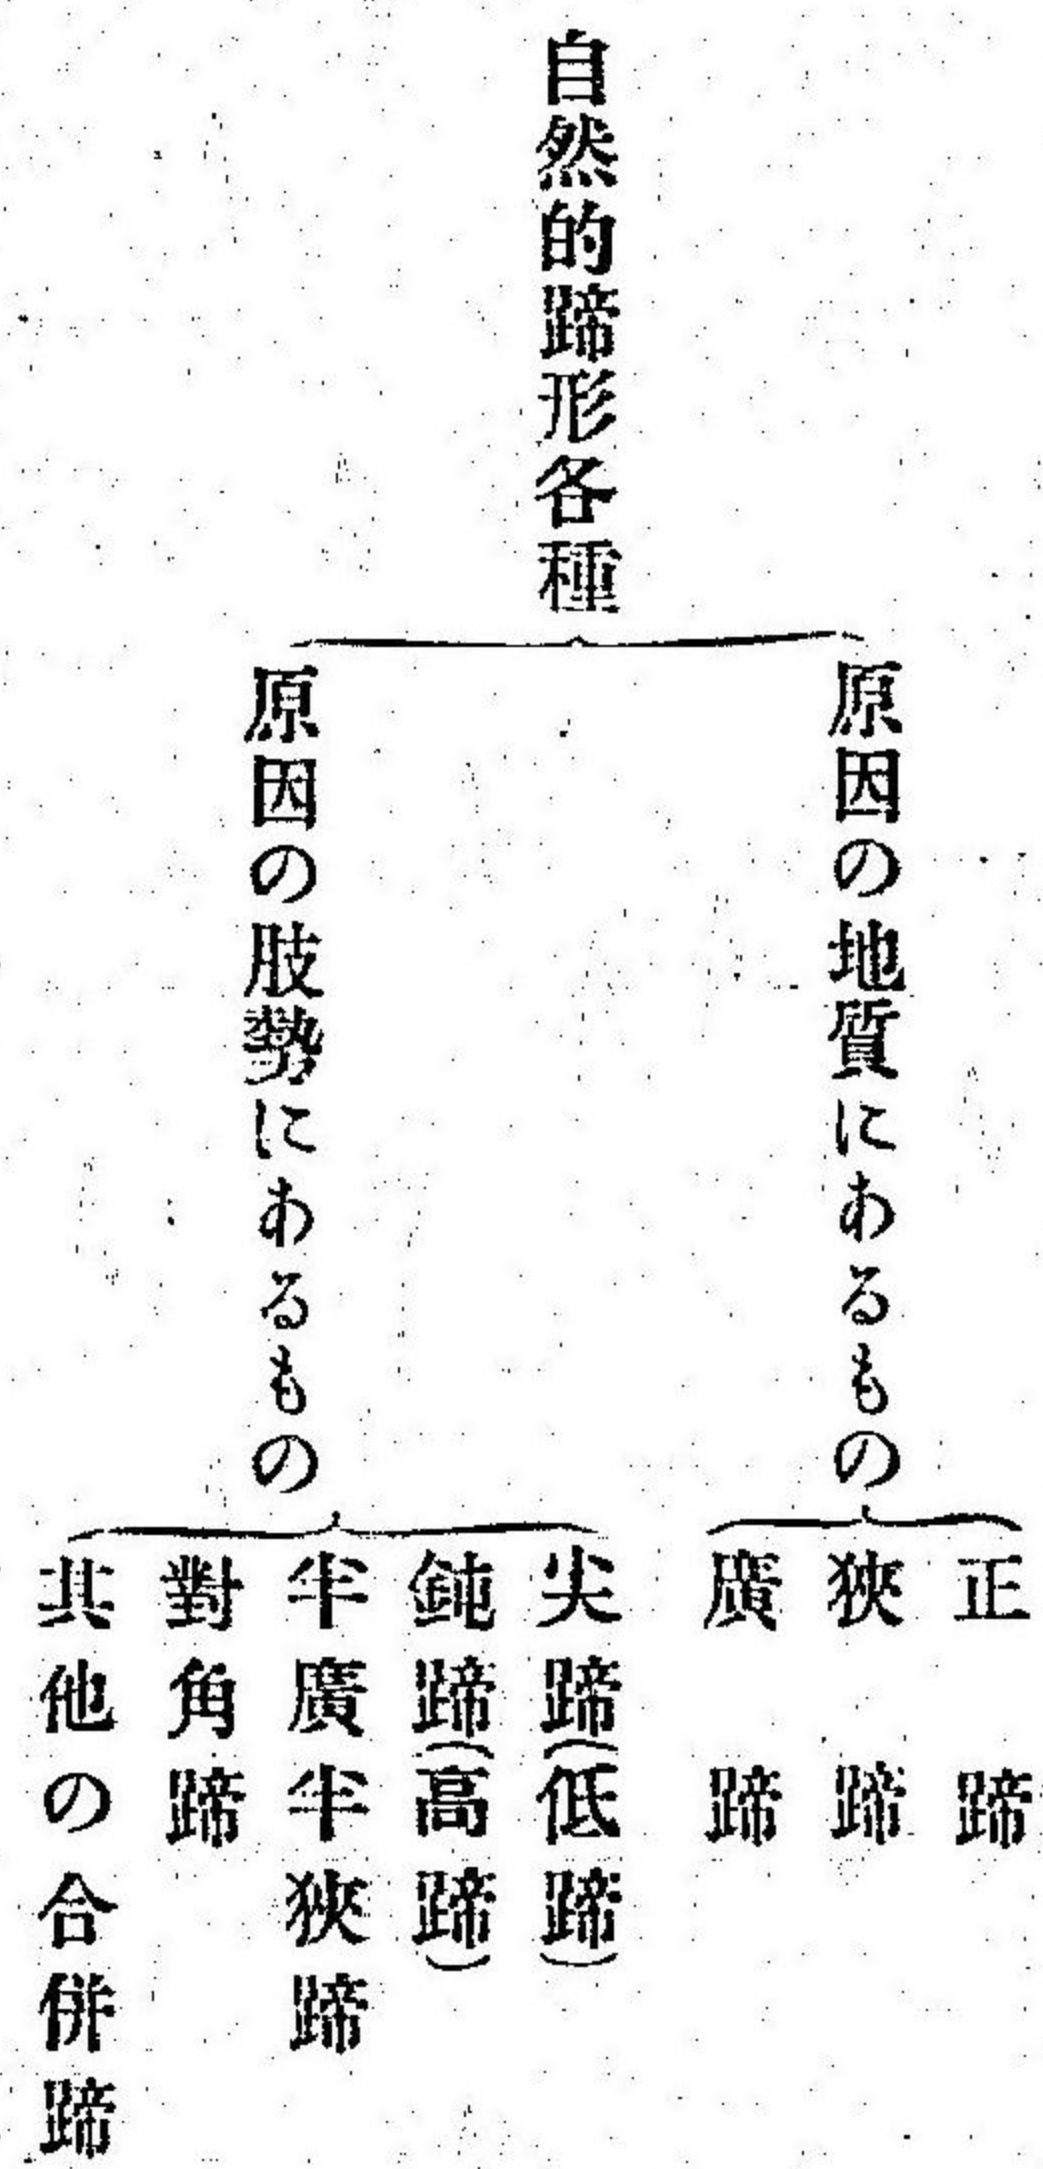 自然的蹄形各種
原因の地質にあるもの
正蹄
狹蹄
廣蹄
原因の肢勢にあるもの
尖蹄(低蹄)
鈍蹄(高蹄)
半廣半狹蹄
對角蹄
其他の合併蹄